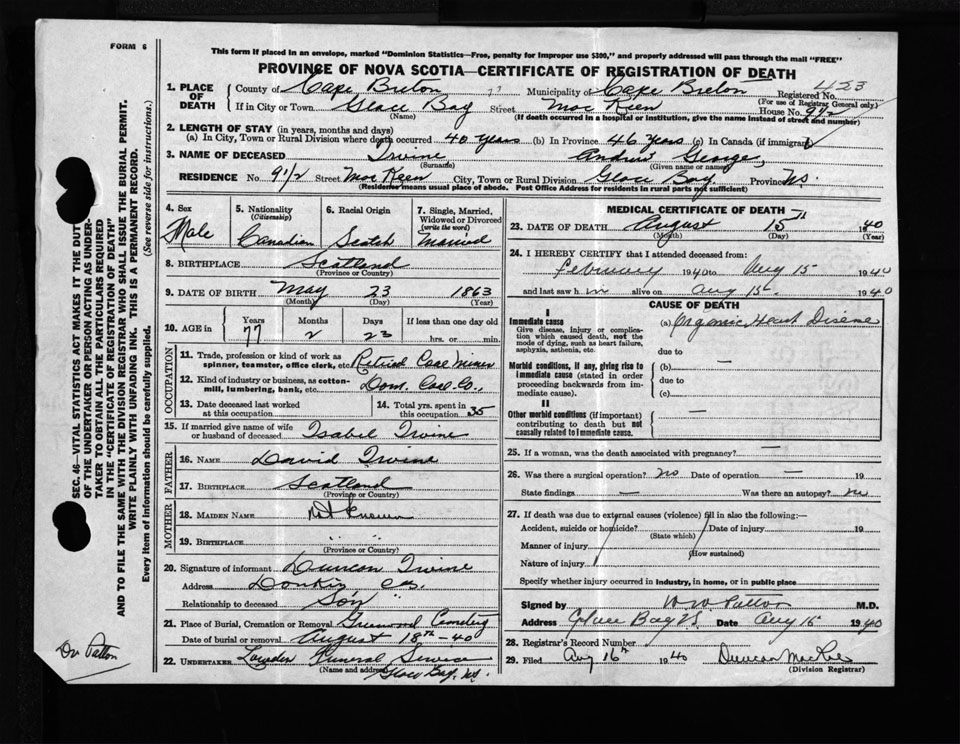 FORM 6
This form if placed in an envelope, marked "Dominion Statistics—Free, penalty for improper use $300," and properly addressed will pass through the mail "FREE"
PROVINCE OF NOVA SCOTIA—CERTIFICATE OF REGISTRATION OF DEATH
1. PLACE OF DEATH
County of Cape Breton Municipality of Cape Breton Registered No. 423
(For use of Registrar General only)
If in City or Town Glace Bay Street Mac Keen House No. 9 1/2
(Name) (If death occurred in a hospital or institution, give the name instead of street and number)
2. LENGTH OF STAY (in years, months and days)
(a) In City, Town or Rural Division where death occurred 40 years (b) In Province 46 Years (c) In Canada (if immigrant)
3. NAME OF DECEASED Irvine Andrew George
(Surname) (Given name or names)
RESIDENCE No. 9 1/2 Street Mac Keen City, Town or Rural Division Glace Bay. Province N.S.
(Residence means usual place of abode. Post Office Address for residents in rural parts not sufficient)
4. Sex Male
5. Nationality (Citizenship) Canadian
6. Racial Origin Scotch
7. Single, Married, Widowed or Divorced (write the word) Married
8. BIRTHPLACE Scotland
(Province or Country)
9. DATE OF BIRTH May 23 1863
(Month) (Day) (Year)
10. AGE in Years 77 Months 2 Days 23 If less than one day old hrs. or min.
OCCUPATION
11. Trade, profession or kind of work as spinner, teamster, office clerk, etc. Retired Coal Miner
12. Kind of industry or business, as cotton-mill, lumbering, bank, etc. Dom. Coal Co.,
13. Date deceased last worked at this occupation
14. Total yrs. spent in this occupation 35
15. If married give name of wife or husband of deceased Isabel Irvine
FATHER
16. NAME David Irvine
17. BIRTHPLACE Scotland
(Province or Country)
MOTHER
18. MAIDEN NAME Not Known
19. BIRTHPLACE " "
(Province or Country)
20. Signature of informant Duncan Irvine
Address Donkin, C.B.
Relationship to deceased Son
21. Place of Burial, Cremation or Removal Greenwood Cemetery
Date of burial or removal August 18th - 40
22. UNDERTAKER Funeral Service
(Name and address) Glace Bay, N.S.
MEDICAL CERTIFICATE OF DEATH
23. DATE OF DEATH August 15th 1940
(Month) (Day) (Year)
24. I HEREBY CERTIFY that I attended deceased from:
February 1940 to Aug 15 1940
and last saw him alive on Aug 15th. 1940
CAUSE OF DEATH
I
Immediate cause
Give disease, injury or complication which caused death, not the mode of dying, such as heart failure, asphyxia, asthenia, etc.
(a) Organic Heart Disease
due to
Morbid conditions, if any, giving rise to immediate cause (stated in order proceeding backwards from immediate cause).
(b) —
due to
(c)
II
Other morbid conditions (if important) contributing to death but not causally related to immediate cause. —
25. If a woman, was the death associated with pregnancy? —
26. Was there a surgical operation? no Date of operation — 19
State findings — Was there an autopsy? no
27. If death was due to external causes (violence) fill in also the following:—
Accident, suicide or homicide? Date of injury 19
(State which)
Manner of injury
(How sustained)
Nature of injury
Specify whether injury occurred in industry, in home, or in public place
Signed by W W Patton M.D.
Address Glace Bay N.S. Date Aug 15 1940
28. Registrar's Record Number
29. Filed Aug 16th 1940 Duncan
(Division Registrar)
SEC. 46—VITAL STATISTICS ACT MAKES IT THE DUTY
OF THE UNDERTAKER OR PERSON ACTING AS UNDER-
TAKER TO OBTAIN ALL THE PARTICULARS REQUIRED
IN THE "CERTIFICATE OF REGISTRATION OF DEATH"
AND TO FILE THE SAME WITH THE DIVISION REGISTRAR WHO SHALL ISSUE THE BURIAL PERMIT.
WRITE PLAINLY WITH UNFADING INK. THIS IS A PERMANENT RECORD.
Every item of information should be carefully supplied. (See reverse side for instructions.)
Dr Patton